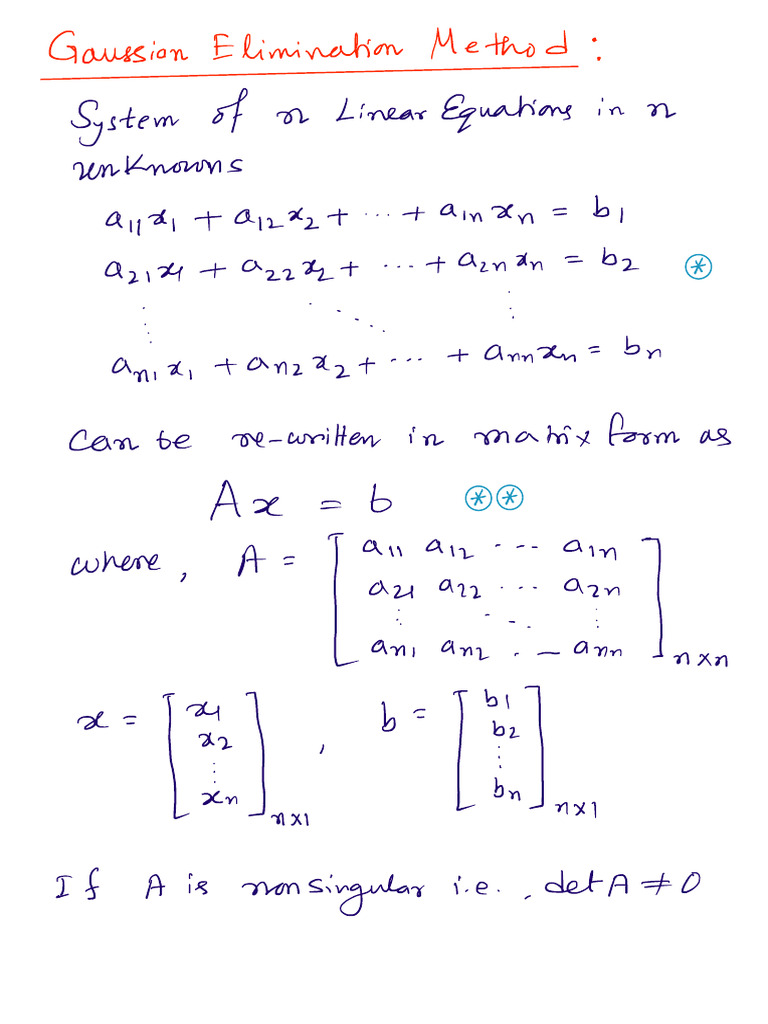 Gaussian Elimination Method :
System of n Linear Equations in n
unknowns
a₁₁x₁ + a₁₂x₂ + ... + a₁ₙxₙ = b₁
a₂₁x₁ + a₂₂x₂ + ... + a₂ₙxₙ = b₂ ⊛
⋮ ⋱ ⋮
aₙ₁x₁ + aₙ₂x₂ + ... + aₙₙxₙ = bₙ
Can be re-written in matrix form as
Ax = b ⊛⊛
where, A = [a₁₁ a₁₂ ... a₁ₙ
a₂₁ a₂₂ ... a₂ₙ
⋮ ⋱ ⋮
aₙ₁ aₙ₂ ... aₙₙ]ₙ×ₙ
x = [x₁ x₂ ⋮ xₙ]ₙ×₁ , b = [b₁ b₂ ⋮ bₙ]ₙ×₁
If A is nonsingular i.e., det A ≠ 0